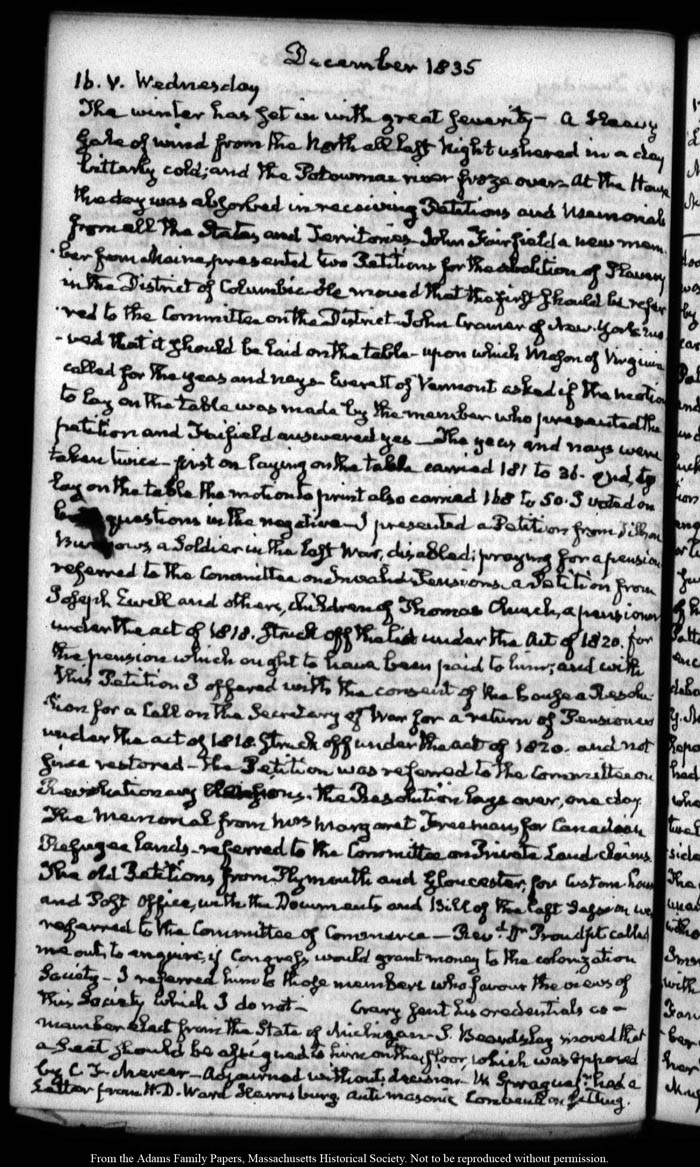 December 1835
16. V. Wednesday
The winter has set in with great severity — a heavy
Gale of wind from the North all last Night ushered in a day
bitterly cold; and the Potowmac river froze over. At the House
the day was absorbed in receiving Petitions and Memorials
from all the States, and Territories. John Fairfield a new mem-
ber from Maine, presented two Petitions for the abolition of Slavery
in the District of Columbia. He moved that the first should be refer
red to the Committee on the District. John Cramer of New-York mo
ved that it should be laid on the table — upon which Mason of Virginia
called for the yeas and nays. Everett of Vermont asked if the motion
to lay on the table was made by the member who presented the
petition and Fairfield answered yes — The yeas and nays were
taken twice — first on laying on the table carried 181 to 36. 2nd, to
lay on the table the motion to print also carried 168 to 50. I voted on
questions in the negative — I presented a Petition from
Burrows a Soldier in the last War, disabled; praying for a pension
referred to the Committee on Invalid Pensions. a Petition from
Joseph Ewell and others, children of Thomas Church, a pensioner
under the act of 1818. Struck off the list under the Act of 1820. for
the pension which ought to have been paid to him; and with
this Petition I offered with the consent of the house a Resolu-
tion for a Call on the Secretary of War for a return of Pensioners
under the act of 1818. Struck off under the act of 1820. and not
since restored — the Petition was referred to the Committee on
Revolutionary . the Resolution lays over, one day.
The Memorial from Mrs Margaret Freeman, for Canadian
Refugee lands — referred to the Committee on Private Land claims.
The old Petitions from Plymouth and Gloucester, for Custom house
and Post Office, with the Documents and Bill of the last Session we
referred to the Committee of Commerce — Revd. Dr Proudfit called
me out, to enquire, if Congress would grant money to the colonization
Society — I referred him to those members who favour the views of
this Society which I do not — Crary sent his credentials as
member elect from the State of Michigan — S. Beardsley moved that
a Seat should be assigned to him on the floor, which was opposed
by C. F. Mercer — Adjourned without decision. W. Sprague had a
Letter from H. D. Ward Harrisburg antimasonic Convention sitting.
From the Adams Family Papers, Massachusetts Historical Society. Not to be reproduced without permission.